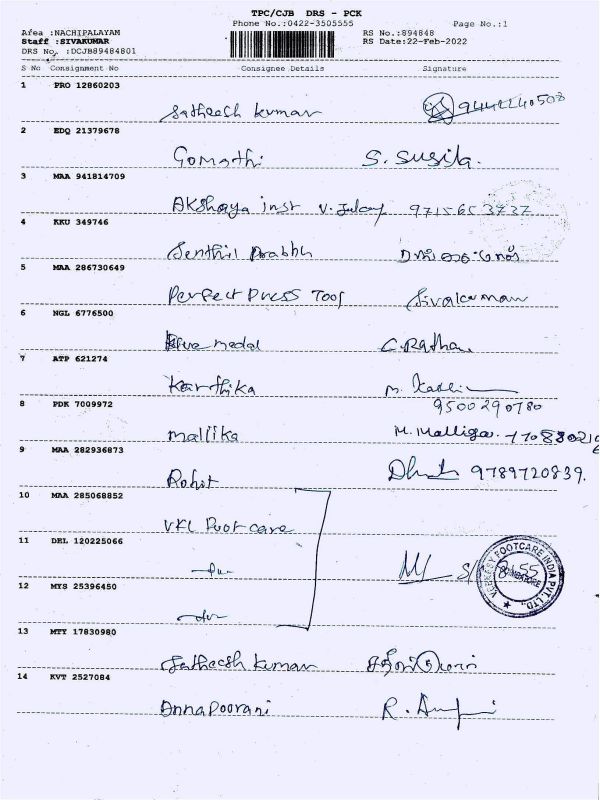 TPC/CJB DRS - PCK
Phone No.:0422-3505555 Page No.:1
Area :NACHIPALAYAM RS No.:894848
Staff :SIVAKUMAR RS Date:22-Feb-2022
DRS No. :DCJB89484801
S No Consignment No Consignee Details Signature
1 PRO 12860203
Satheesh kumar 9442240508
2 EDQ 21379678
Gomathi S. Susila.
3 MAA 941814709
Akshaya inst 9715653737
4 KKU 349746
Senthil Prabhu
5 MAA 286730649
Perfect Press Tool Sivakumar
6 NGL 6776500
medal C. Rathna
7 ATP 621274
Karthika M.
9500290780
8 PDK 7009972
Mallika M. Malliga.
9 MAA 282936873
Rohit 9789720839.
10 MAA 285068852
VKC Foot care
11 DEL 120225066
VEEKAY FOOTCARE INDIA PVT. LTD.
COIMBATORE
12 MYS 25396450
13 MTY 17830980
Satheesh kumar
14 KVT 2527084
Annapoorani R.